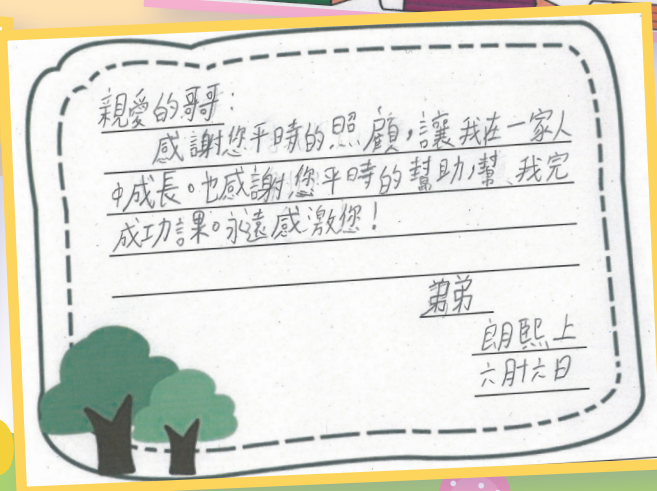 親愛的哥哥：
感謝您平時的照顧，讓我在一家人
中成長。也感謝您平時的幫助，幫我完
成功課。永遠感激您！
弟弟
朗熙上
六月十六日